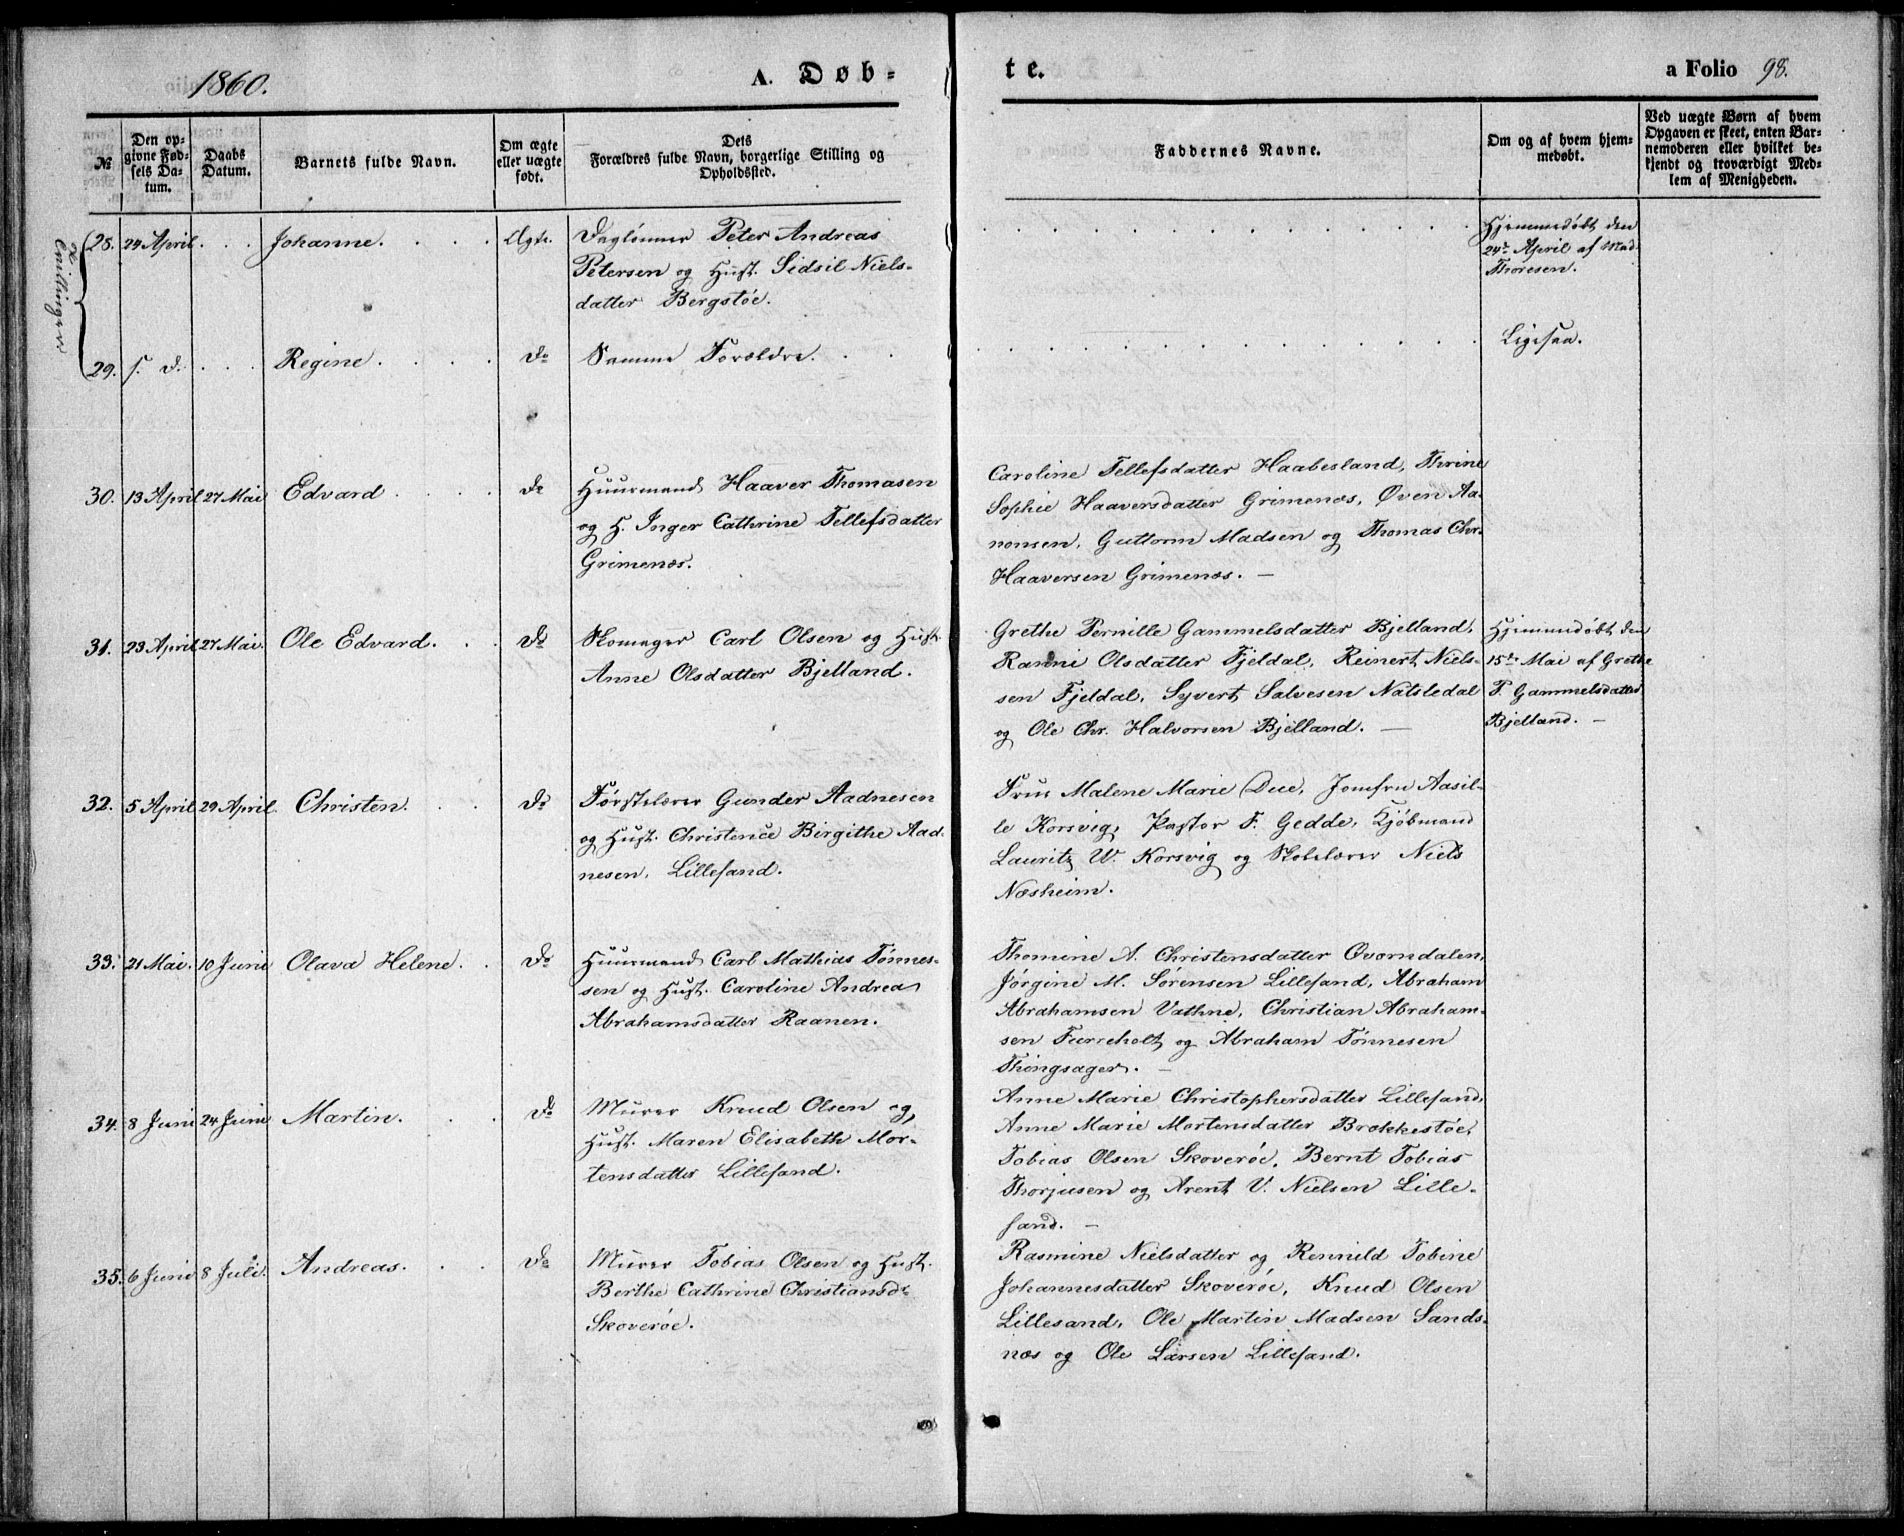 1860.
A. Døb-
te.
a Folio 98.
№
Den op-
givne Fød-
sels Da-
tum.
Daabs
Datum.
Barnets fulde Navn.
Om ægte
eller uægte
født.
Dets
Forældres fulde Navn, borgerlige Stilling og
Opholdssted.
Faddernes Navne.
Om og af hvem hjem-
medøbt.
Ved uægte Børn af hvem
Opgaven er skeet, enten Bar-
nemoderen eller hvilket be-
kjendt og troværdigt Med-
lem af Menigheden.
Tvillinger
28. 24 April . . . Johanne. . . . . Ægte. Daglønner Peter Andreas
Petersen og Hust. Sidsil Niels-
datter Bergstøe.
Hjemmedøbt den
24de April af Mad.
Thoresen.
29. s. d. . . . Regine . . . . Do Samme Forældre. . .
Ligesaa.
30. 13 April 27 Mai Edvard . . . . Do Huusmand Haaver Thomasen
og H. Inger Cathrine Tellefsdatter
Grimenæs.
Caroline Tellefsdatter Haabesland, Thrine
Sophie Haaversdatter Grimenæs, Øven Aa-
nonsen, Guttorm Madsen og Thomas Chr.
Haaversen Grimenæs. —
31. 23 April 27 Mai. Ole Edvard. . . Do Skomager Carl Olsen og Hust.
Anne Olsdatter Bjelland.
Grethe Pernille Gammelsdatter Bjelland,
Ranni Olsdatter Fjeldal, Reinert Niels-
sen Fjeldal, Syvert Salvesen Natsledal
og Ole Chr. Halvorsen Bjelland. —
Hjemmedøbt den
15de Mai af Grethe
P. Gammelsdatter
Bjelland. —
32. 5 April 29 April. Christen. . . Do Førstelærer Gunder Aadnesen
og Hust. Christence Birgithe Aad-
nesen, Lillesand.
Frue Malene Marie Due, Jomfru Aasil-
le Korsvig, Pastor F. Gedde, Kjøbmand
Lauritz W. Korsvig og Skolelærer Niels
Næsheim.
33. 21 Mai. 10 Juni Olava Helene. . Do Huusmand Carl Mathias Tønnes-
sen og Hust. Caroline Andrea
Abrahamsdatter Raanen.
Thomine A. Christensdatter Qværndalen,
Jørgine M. Sørensen Lillesand, Abraham
Abrahamsen Vathne, Christian Abraham-
sen Furreholt og Abraham Tønnesen
Thingsager. —
34. 8 Juni 24 Juni Martin. . . Do Murer Knud Olsen og
Hust. Maren Elisabeth Mor-
tensdatter Lillesand.
Anne Marie Christophersdatter Lillesand,
Anne Marie Mortensdatter Brækkestøe,
Tobias Olsen Skoverøe, Bernt Tobias
Thorjusen og Arent V. Nielsen Lille-
sand. —
35. 6 Juni 8 Juli. Andreas. . . Do Murer Tobias Olsen og Hust.
Berthe Cathrine Christiansdr
Skoverøe.
Rasmine Nielsdatter og Rennild Tobine
Johannesdatter Skoverøe, Knud Olsen
Lillesand, Ole Martin Madsen Sands-
næs og Ole Larsen Lillesand.